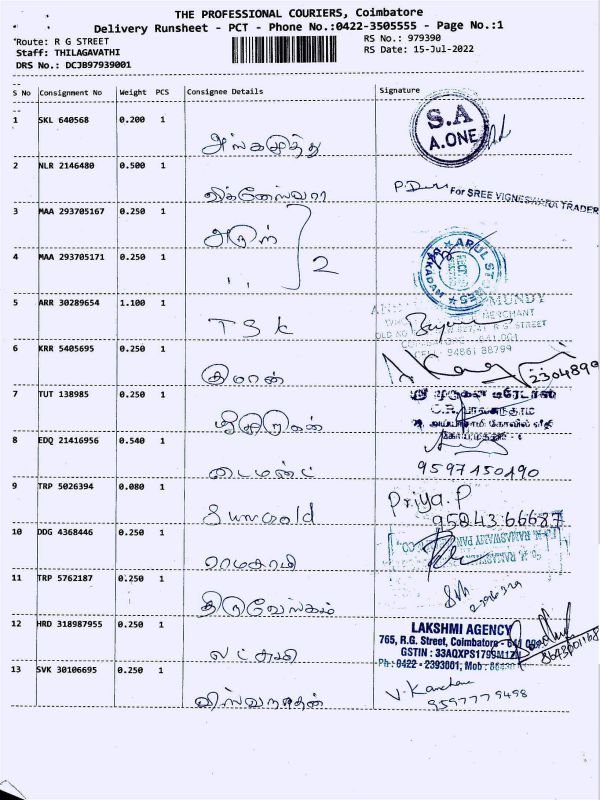 THE PROFESSIONAL COURIERS, Coimbatore
Delivery Runsheet - PCT - Phone No.:0422-3505555 - Page No.:1
Route: R G STREET
Staff: THILAGAVATHI
DRS No.: DCJB97939001
RS No.: 979390
RS Date: 15-Jul-2022
S No Consignment No Weight PCS Consignee Details Signature
1 SKL 640568 0.200 1
அங்கமுத்து
S.A
A.ONE
2 NLR 2146480 0.500 1
விக்னேஸ்வரா
For SREE VIGNESWARA TRADER
3 MAA 293705167 0.250 1
அருள்
4 MAA 293705171 0.250 1
,, 2
ARUL STONES
5 ARR 30289654 1.100 1
TSK
MUNDY
MERCHANT
R.G. STREET
CELL: 94861 88799
6 KRR 5405695 0.250 1
குமரன்
2304899
7 TUT 138985 0.250 1
ஸ்ரீ முருகன் டிரேடர்ஸ்
8 EDQ 21416956 0.540 1
டைமண்ட்
9597150190
9 TRP 5026394 0.080 1
Sungold
Priya.P
9504366687
10 DDG 4368446 0.250 1
ராமசாமி
11 TRP 5762187 0.250 1
திருவேங்கடம்
12 HRD 318987955 0.250 1
லட்சுமி
LAKSHMI AGENCY
765, R.G. Street, Coimbatore - 641 001
GSTIN : 33AQXPS1799M1ZN
Ph : 0422 - 2393001, Mob :
13 SVK 30106695 0.250 1
விஸ்வநாதன்
V. Kanchana
9597779498